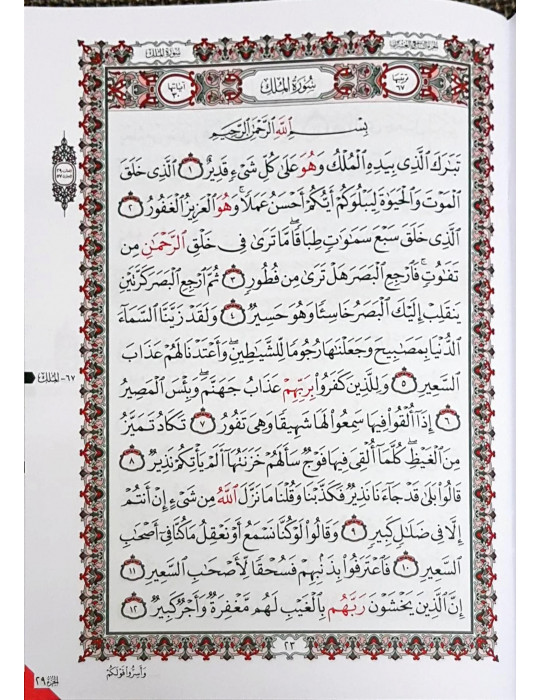 سُورَةُ المُلْكِ
الجُزْءُ التَّاسِعُ وَالعِشْرُونَ
تَرْتِيبُهَا ٦٧
سُورَةُ المُلْكِ
آيَاتُهَا ٣٠
بِسْمِ اللَّهِ الرَّحْمَٰنِ الرَّحِيمِ
تَبَارَكَ الَّذِي بِيَدِهِ الْمُلْكُ وَهُوَ عَلَىٰ كُلِّ شَيْءٍ قَدِيرٌ ١ الَّذِي خَلَقَ
الْمَوْتَ وَالْحَيَوٰةَ لِيَبْلُوَكُمْ أَيُّكُمْ أَحْسَنُ عَمَلًا ۚ وَهُوَ الْعَزِيزُ الْغَفُورُ ٢
الَّذِي خَلَقَ سَبْعَ سَمَاوَاتٍ طِبَاقًا ۖ مَّا تَرَىٰ فِي خَلْقِ الرَّحْمَٰنِ مِن
تَفَاوُتٍ ۖ فَارْجِعِ الْبَصَرَ هَلْ تَرَىٰ مِن فُطُورٍ ٣ ثُمَّ ارْجِعِ الْبَصَرَ كَرَّتَيْنِ
يَنقَلِبْ إِلَيْكَ الْبَصَرُ خَاسِئًا وَهُوَ حَسِيرٌ ٤ وَلَقَدْ زَيَّنَّا السَّمَاءَ
الدُّنْيَا بِمَصَابِيحَ وَجَعَلْنَاهَا رُجُومًا لِّلشَّيَاطِينِ ۖ وَأَعْتَدْنَا لَهُمْ عَذَابَ
السَّعِيرِ ٥ وَلِلَّذِينَ كَفَرُوا بِرَبِّهِمْ عَذَابُ جَهَنَّمَ ۖ وَبِئْسَ الْمَصِيرُ
٦ إِذَا أُلْقُوا فِيهَا سَمِعُوا لَهَا شَهِيقًا وَهِيَ تَفُورُ ٧ تَكَادُ تَمَيَّزُ
مِنَ الْغَيْظِ ۖ كُلَّمَا أُلْقِيَ فِيهَا فَوْجٌ سَأَلَهُمْ خَزَنَتُهَا أَلَمْ يَأْتِكُمْ نَذِيرٌ ٨
قَالُوا بَلَىٰ قَدْ جَاءَنَا نَذِيرٌ فَكَذَّبْنَا وَقُلْنَا مَا نَزَّلَ اللَّهُ مِن شَيْءٍ إِنْ أَنتُمْ
إِلَّا فِي ضَلَالٍ كَبِيرٍ ٩ وَقَالُوا لَوْ كُنَّا نَسْمَعُ أَوْ نَعْقِلُ مَا كُنَّا فِي أَصْحَابِ
السَّعِيرِ ١٠ فَاعْتَرَفُوا بِذَنبِهِمْ فَسُحْقًا لِّأَصْحَابِ السَّعِيرِ ١١
إِنَّ الَّذِينَ يَخْشَوْنَ رَبَّهُم بِالْغَيْبِ لَهُم مَّغْفِرَةٌ وَأَجْرٌ كَبِيرٌ ١٢
٢٣
٦٧- المُلْك
وَأَسِرُّوا قَوْلَكُمْ
الجُزْءُ ٢٩